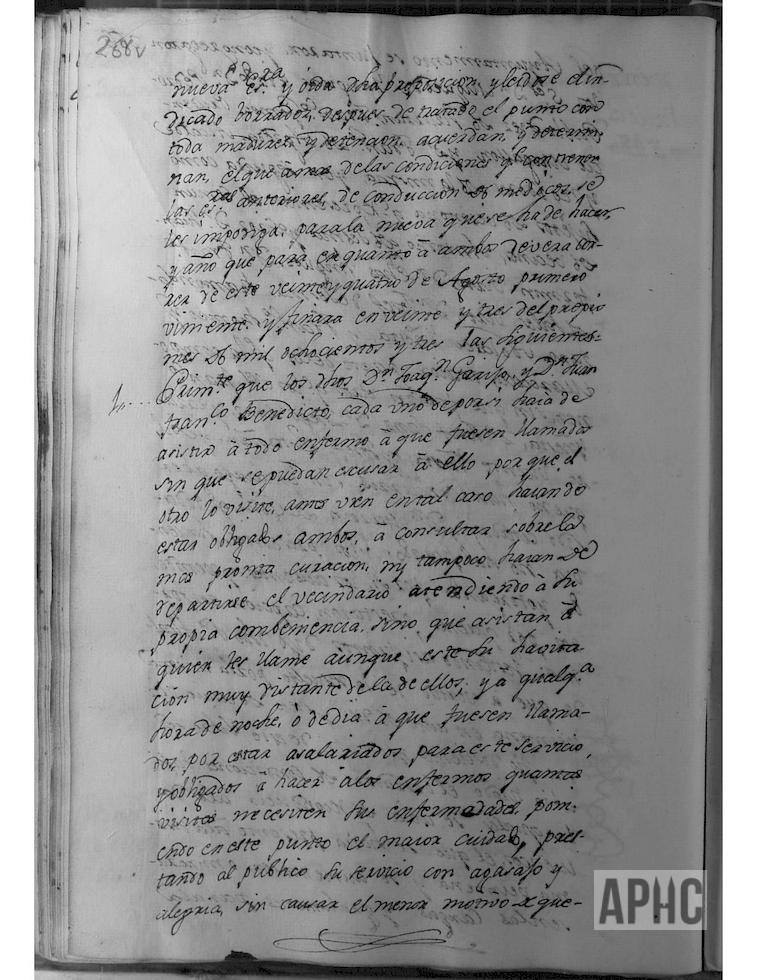 268v
nueva es.ra y oida dha proposicion y leido el in-
dicado borrador, despues de tratado el punto con
toda madurez, y detencion, acuerdan, y determi-
nan, el que amas de las condiciones q.e contienen
las es.ras anteriores, de conduccion de medicos, se
les imponga, para la nueva que se ha de hacer,
y año que para en quanto à ambos devera cor-
rer de este veinte y quatro de Agosto primero
viniente, y finara en veinte y tres del propio
mes de mil ochocientos y tres las siguientes=
Prim.te que los dhos D.n Joaq.n Garisa, y D.n Juan
fran.co Benedicto, cada uno de por si haia de
asistir à todo enfermo à que fuesen llamados
sin que se puedan escusar à ello, por que el
otro lo visite, antes vien en tal caso haiande
estar obligados ambos, à consultar sobre la
mas pronta curacion, ny tampoco haian de
repartirse el vecindario atendiendo à su
propia combeniencia, sino que asistan à
quien les llame aunque este su havita-
ción muy distante de la de ellos, y à qualq.a
hora de noche, ò de dia à que fuesen llama-
dos, por estar asalariados para este servicio,
y obligados à hacer à los enfermos quantas
visitas necesiten sus enfermedades, poni-
endo en este punto el maior cuidado, pres-
tando al publico su servicio con agasajo y
alegria, sin causar el menor motivo de que-
APHC